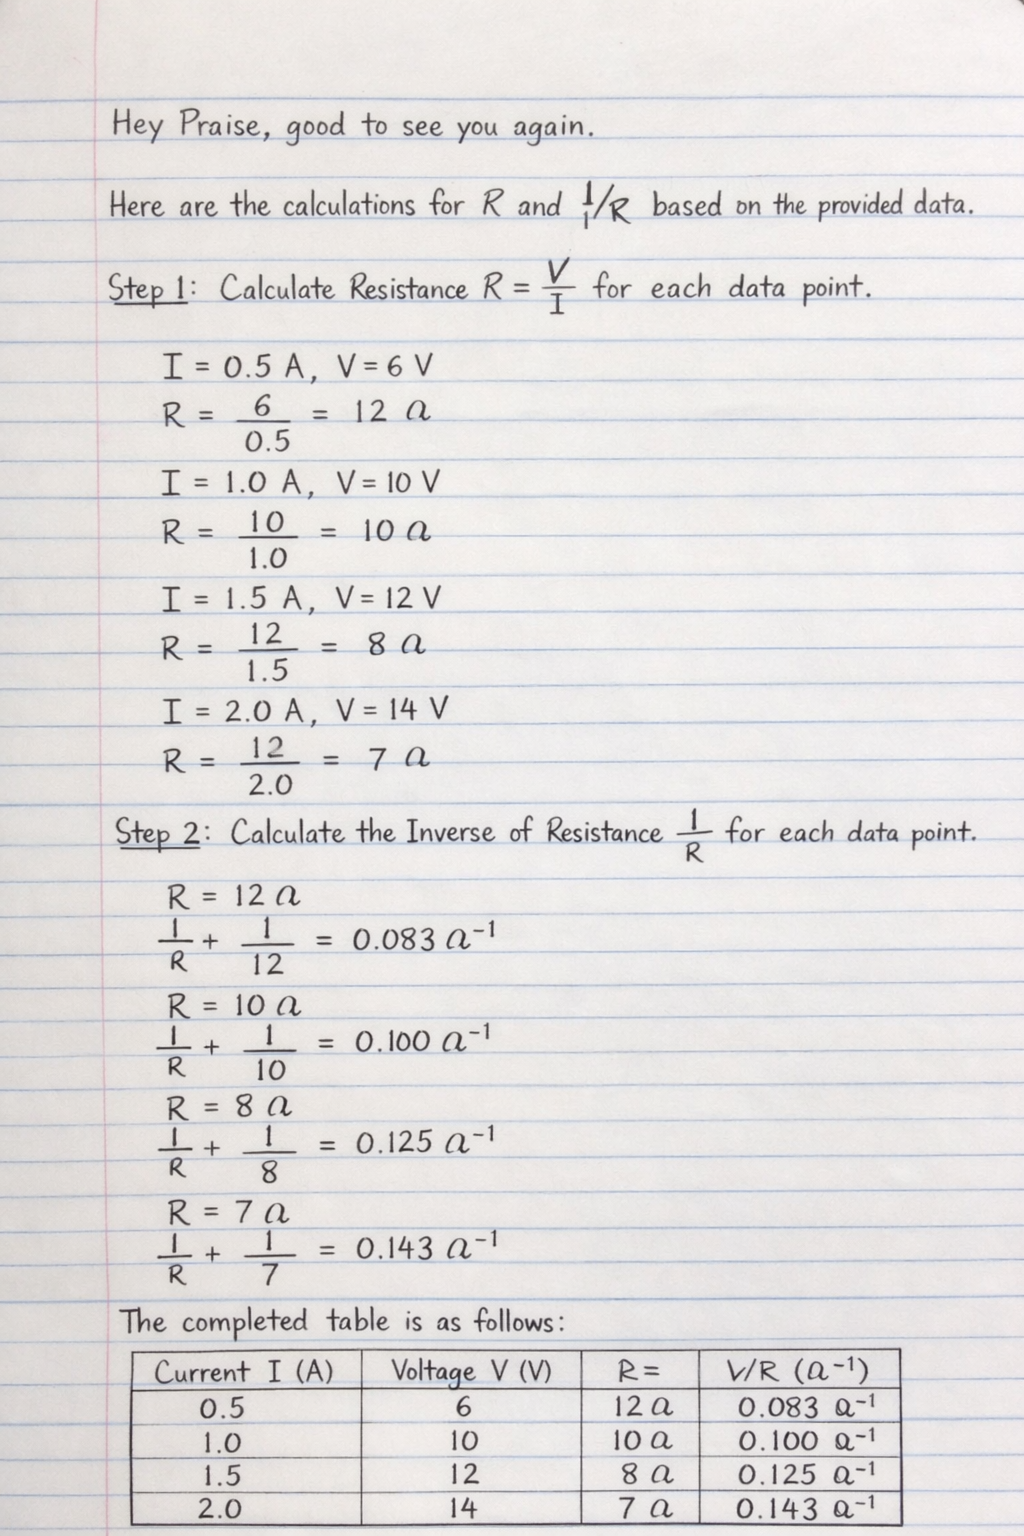 Hey Praise, good to see you again.
Here are the calculations for R and 1/1/R based on the provided data.
Step 1: Calculate Resistance R = V/I for each data point.
I = 0.5 A, V = 6 V
R = 6/0.5 = 12 a
I = 1.0 A, V = 10 V
R = 10/1.0 = 10 a
I = 1.5 A, V = 12 V
R = 12/1.5 = 8 a
I = 2.0 A, V = 14 V
R = 12/2.0 = 7 a
Step 2: Calculate the Inverse of Resistance 1/R for each data point.
R = 12 a
1/R + 1/12 = 0.083 a⁻¹
R = 10 a
1/R + 1/10 = 0.100 a⁻¹
R = 8 a
1/R + 1/8 = 0.125 a⁻¹
R = 7 a
1/R + 1/7 = 0.143 a⁻¹
The completed table is as follows:
Current I (A) Voltage V (V) R= V/R (a⁻¹)
0.5 6 12 a 0.083 a⁻¹
1.0 10 10 a 0.100 a⁻¹
1.5 12 8 a 0.125 a⁻¹
2.0 14 7 a 0.143 a⁻¹